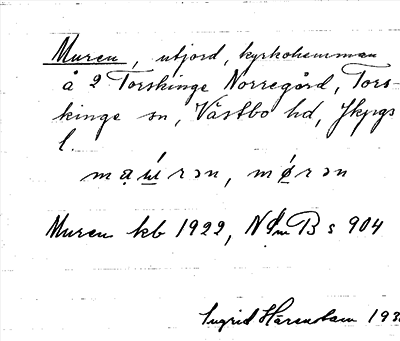 Muren, utjord, kyrkohemman
å 2 Torskinge Norregård, Tors-
kinge sn, Västbo hd, Jkpgs
l.
mørən
Muren kb 1922, B s 904
Ingrid Härenstam 193